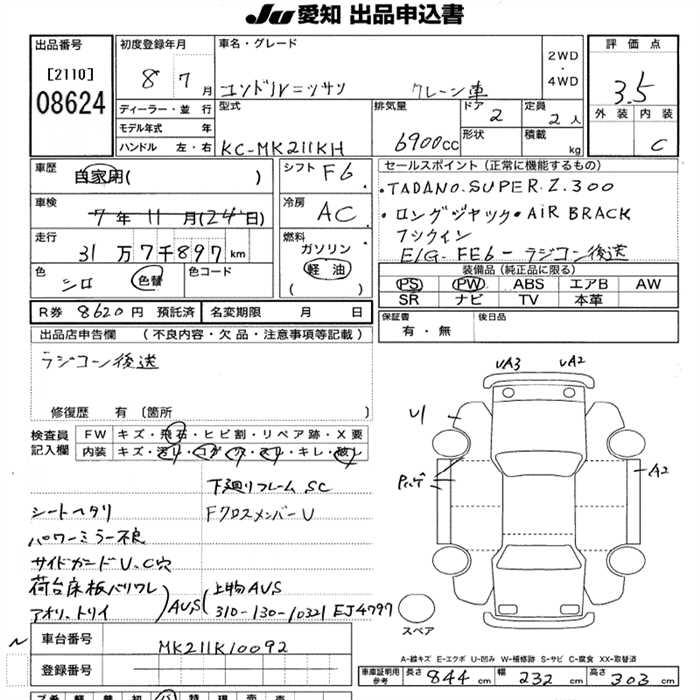 JU 愛知 出品申込書
出品番号
[2110]
08624
初度登録年月
8 7月
ディーラー・並行
モデル年式 年
ハンドル 左・右
車名・グレード
コンドル=ニッサン クレーン車
2WD・4WD
型式
KC-MK211KH
排気量
6900cc
ドア
2
形状
定員
2人
積載
kg
評価点
3.5
外装 内装
C
車歴
自家用( )
車検
7年11月(24日)
走行
31万7千897km
色
シロ 色替
色コード
シフト
F6
冷房
AC
燃料
ガソリン
軽油
( )
セールスポイント(正常に機能するもの)
・TADANO.SUPER.Z.300
・ロングジャッキ・AIR BRACK
フックイン
E/G-FE6-ラジコン後送
装備品(純正品に限る)
PS PW ABS エアB AW
SR ナビ TV 本革
R券 8620円 預託済 名変期限 月 日
保証書
有・無
後日品
出品店申告欄 (不良内容・欠品・注意事項等記載)
ラジコン後送
修復歴 有〔箇所 〕
検査員記入欄
FW キズ・飛石・ヒビ割・リペア跡・X要
内装 キズ・汚レ・コゲ・穴・スレ・キレ・破レ
下廻りフレームSC
シートヘタリ
FクロスメンバーU
パワーミラー不良
サイドガードU、C穴
荷台床板バリワレ
アオリ、トリイ
AUS
上物AUS
310-130-10321 EJ4797
車台番号
MK211K10092
登録番号
UA3 UA2
U1
A2
スペア
A-線キズ E-エクボ U-凹み W-補修跡 S-サビ C-腐食 XX-取替済
車庫証明用参考
長さ 844cm 幅 232cm 高さ 303cm